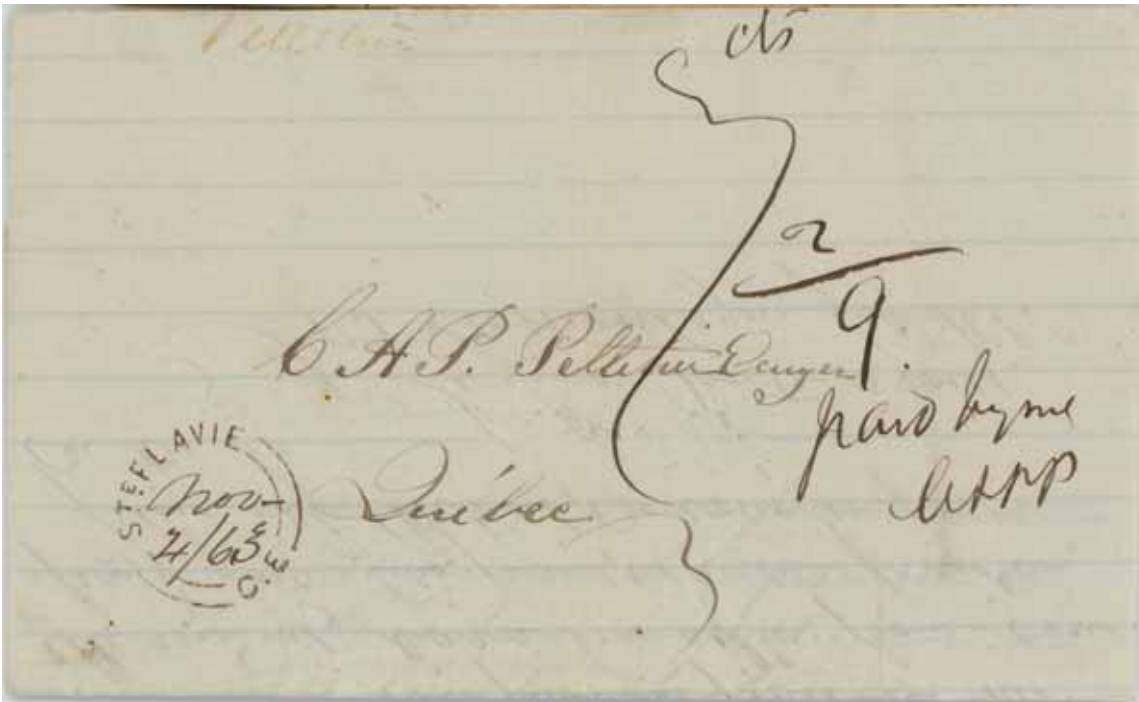 Pelletier
cts
2
9
C. A. P. Pelletier Ecuyer.
paid by me
CAPP
STE. FLAVIE
Nov
4/63
C.E.
Québec